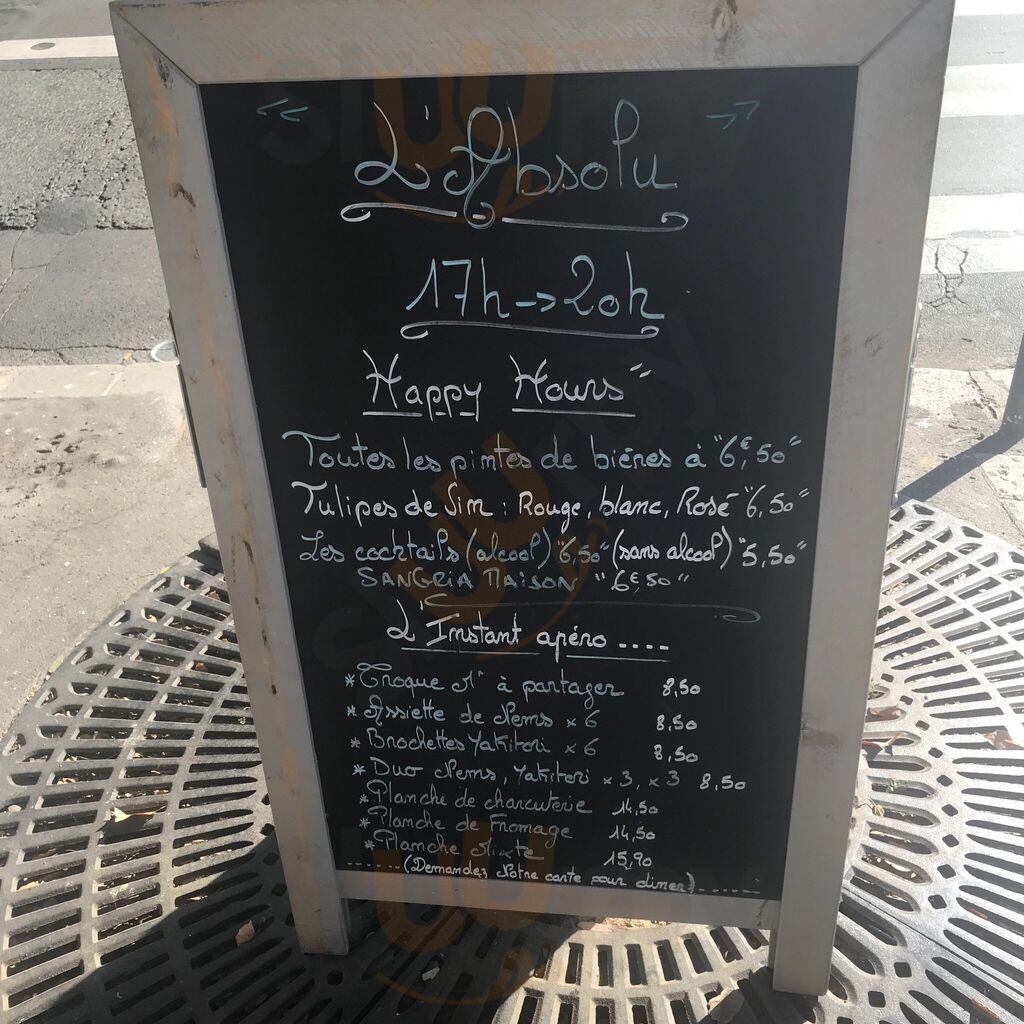 L'Absolu
17h -> 20h
Happy Hours"
Toutes les pintes de bières à "6€,50"
Tulipes de Vin : Rouge, blanc, Rosé "6,50"
Les cocktails (alcool) "6,50" (sans alcool) "5,50"
SANGRIA MAISON "6€50"
L'Instant apéro ....
* Croque Mr à partager 8,50
* Assiette de Nems x 6 8,50
* Brochettes Yakitori x 6 8,50
* Duo Nems, Yakitori x 3, x 3 8,50
* Planche de charcuterie 14,50
* Planche de Fromage 14,50
* Planche Mixte 15,90
------(Demandez Notre carte pour diner)------